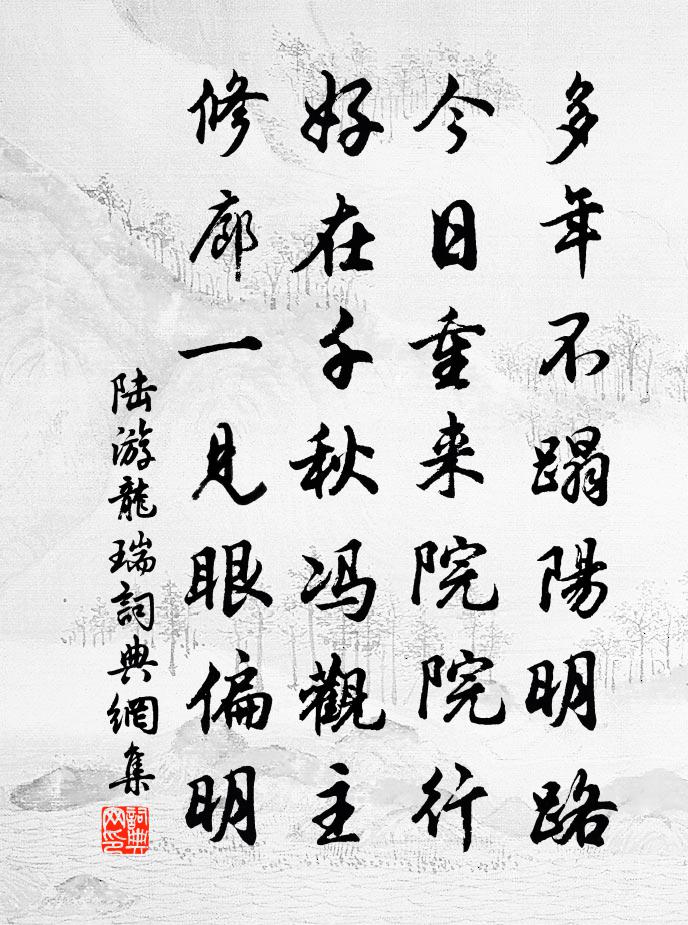 多年不蹋陽明路
今日重来院院行
好在千秋冯觀主
修廊一見眼偏明
陆游龍瑞詞典網集
詞典网印